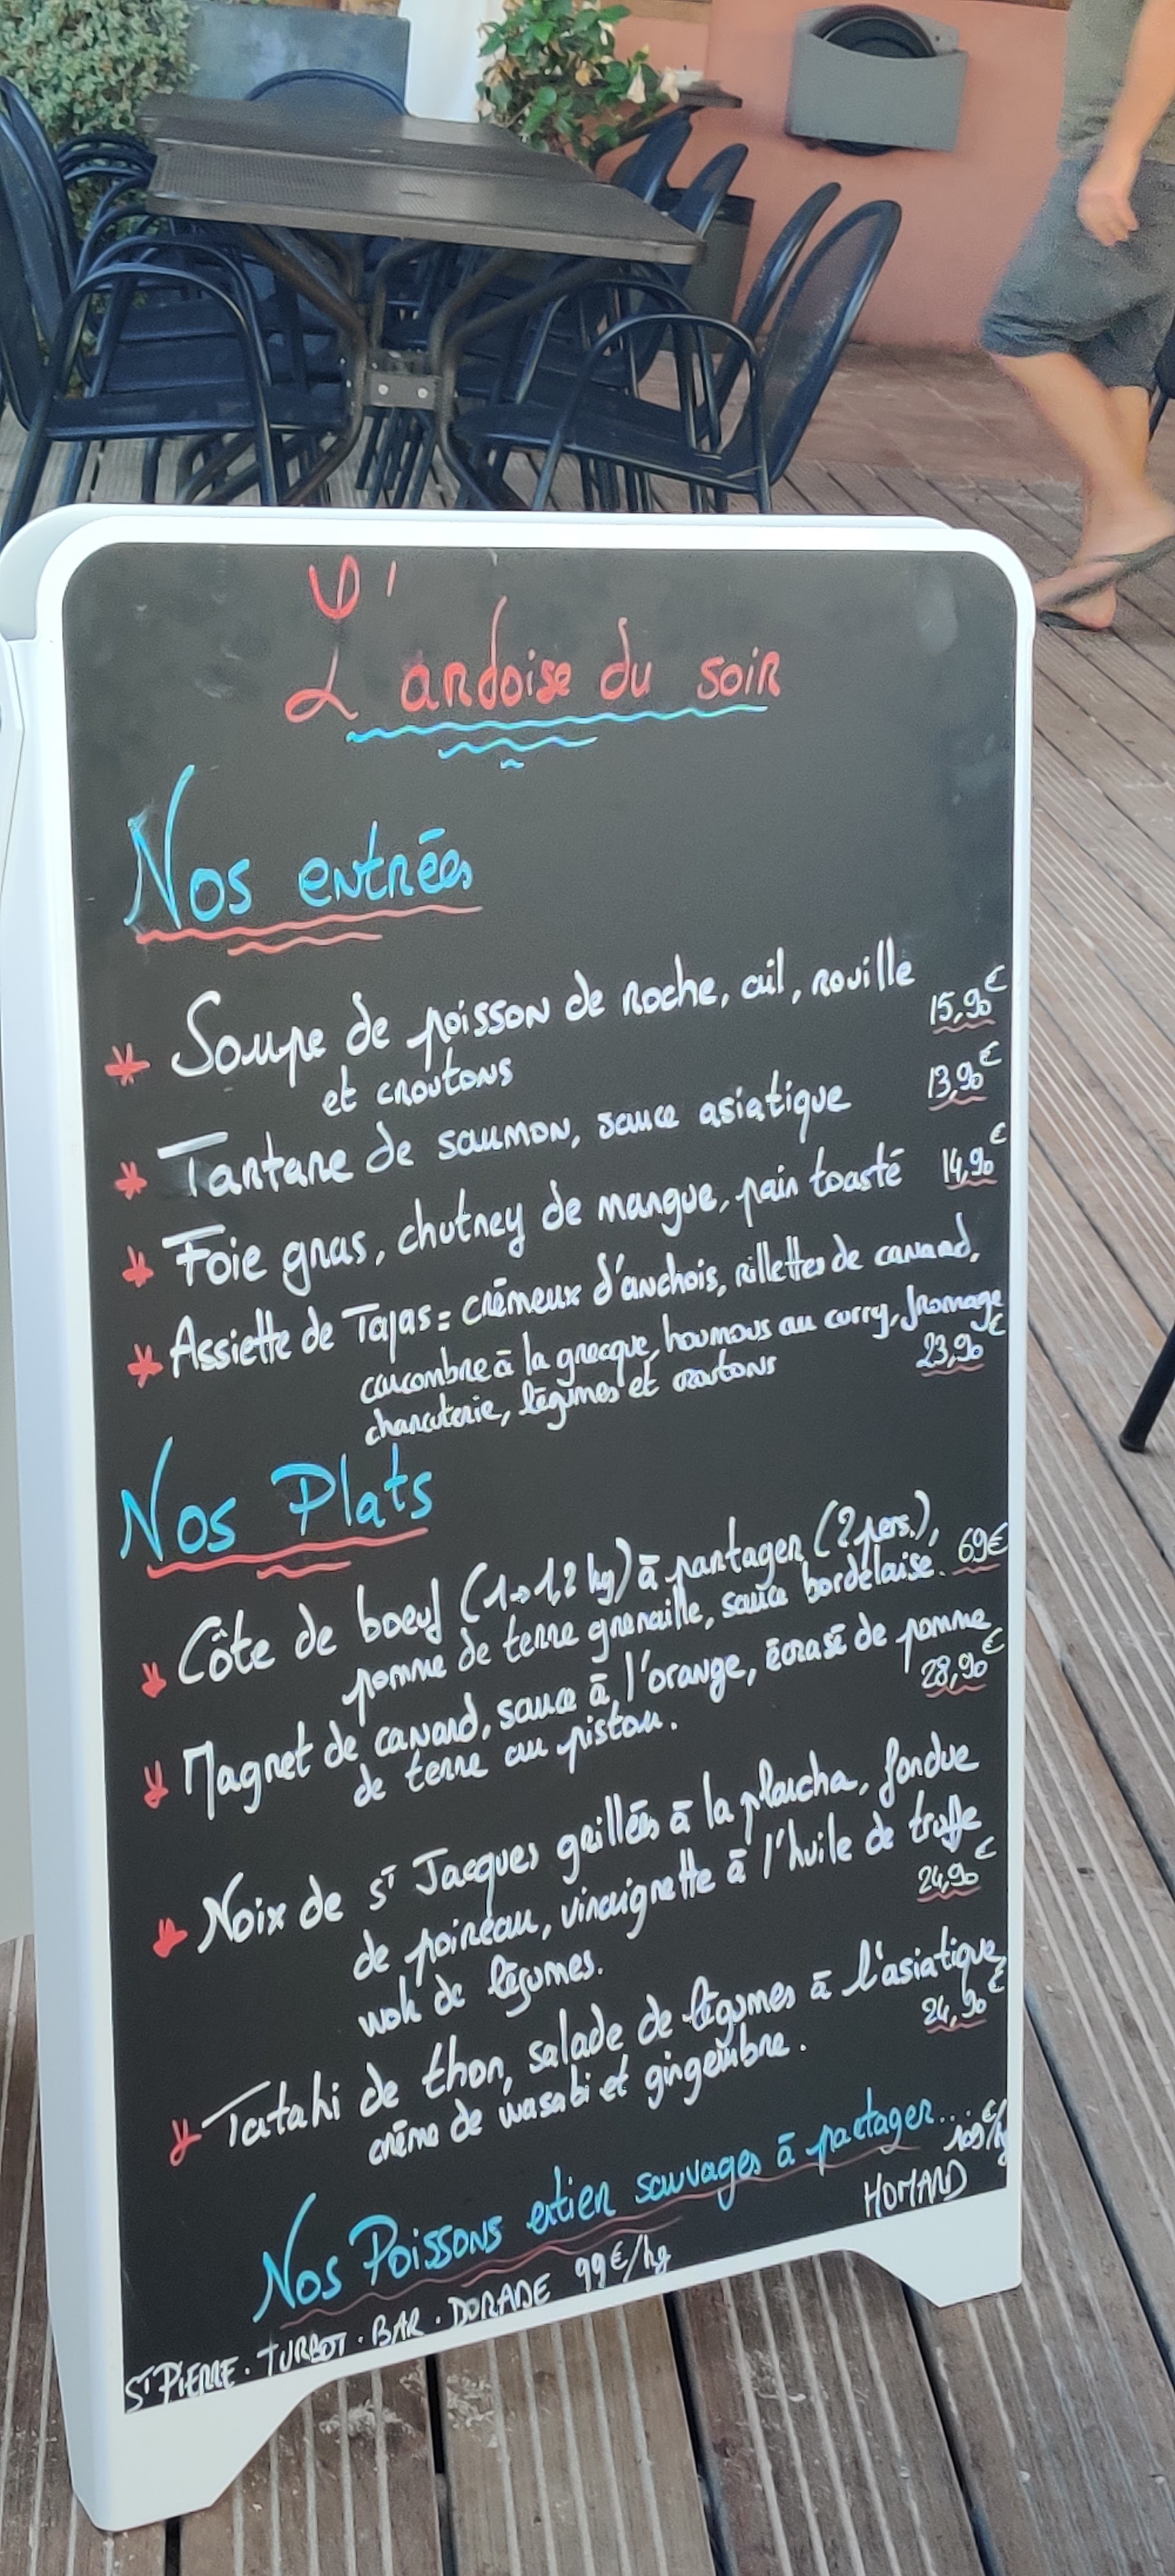 L'ardoise du soir
Nos entrées
Soupe de poisson de roche, ail, rouille
et croutons 15,90€
Tartare de saumon, sauce asiatique 13,90€
Foie gras, chutney de mangue, pain toasté 14,90€
Assiette de Tapas = crémeux d'anchois, rillettes de canard,
concombre à la grecque, houmous au curry, fromage
charcuterie, légumes et croutons 23,90€
Nos Plats
Côte de boeuf (1→1,2 kg) à partager (2 pers.),
pomme de terre grenaille, sauce bordelaise. 69€
Magret de canard, sauce à l'orange, écrasé de pomme
de terre au pistou. 28,90€
Noix de St Jacques grillées à la plancha, fondue
de poireau, vinaigrette à l'huile de truffe
wok de légumes. 24,90€
Tatahi de thon, salade de légumes à l'asiatique,
crème de wasabi et gingembre. 24,90€
Nos Poissons entier sauvages à partager...
ST PIERRE · TURBOT · BAR · DORADE 99€/kg
HOMARD 109€/kg